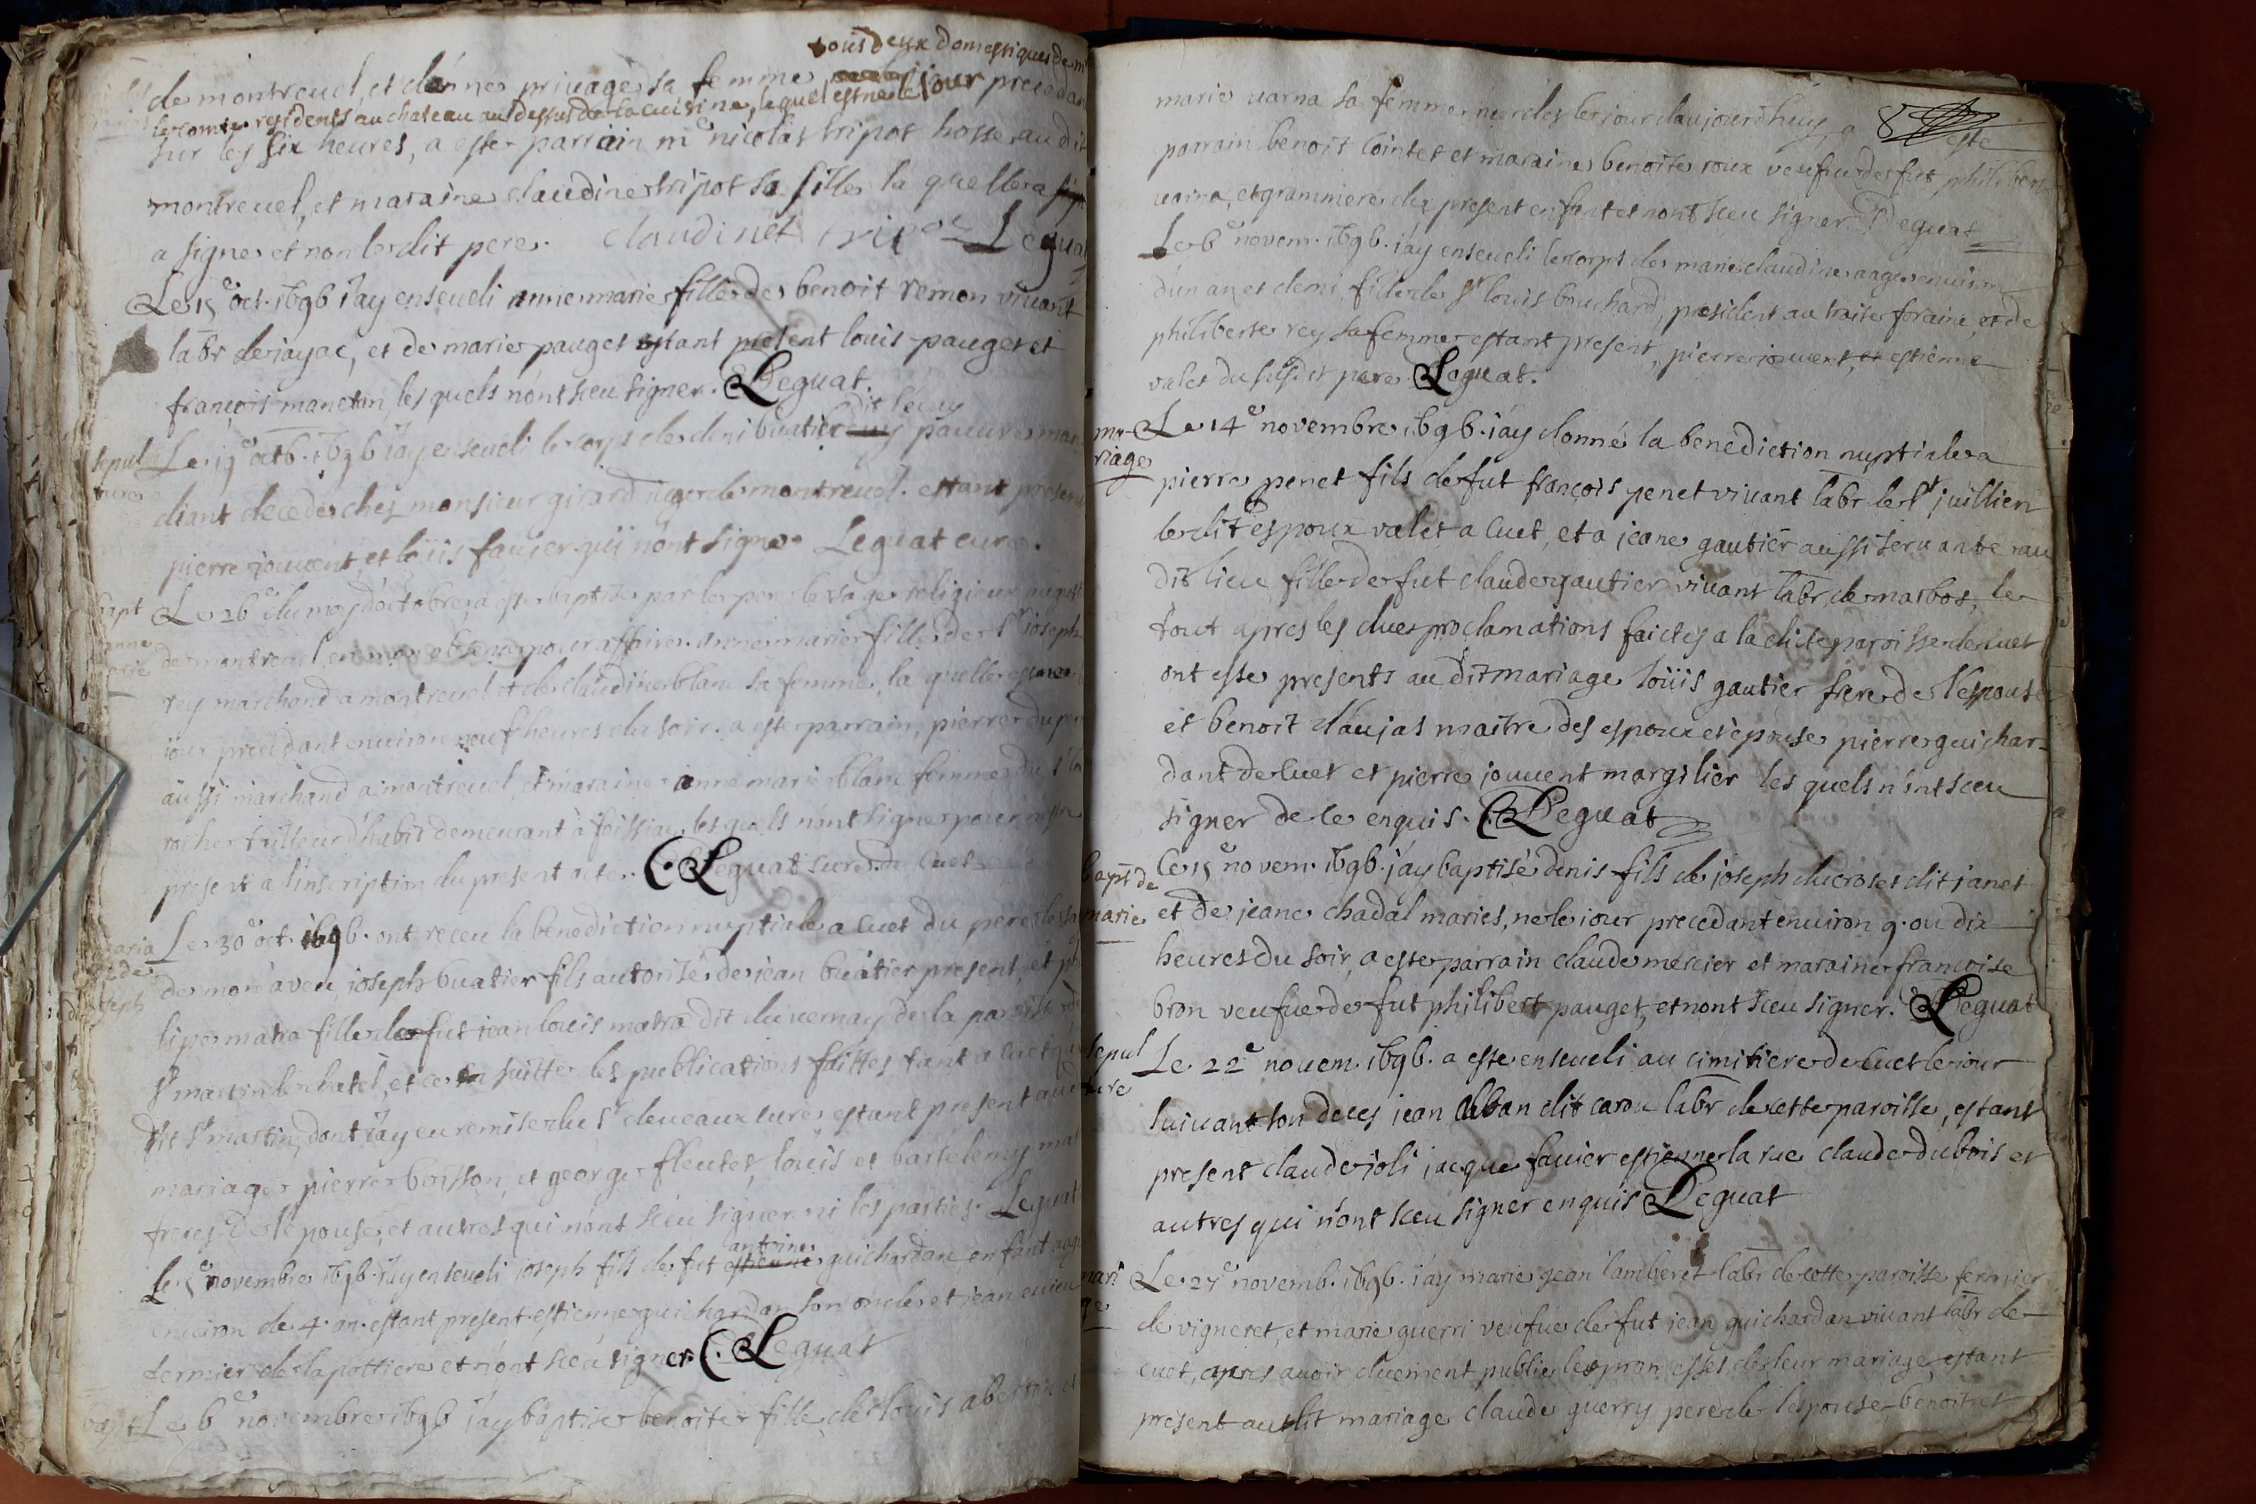 tous deux domestiques de mr
de montreuel, et danne privage sa femme, jour precedant
le comte residents au chateau au dessus de la cuisine, lequel est né le
sur les six heures, a este parrain me nicolas tripot hoste audit
montreuel, et maraine claudine tripot sa fille la quelle a
a signe et non le dit pere. claudine tripot Leguat
Le 15e oct. 1696 i'ay enseveli anne marie fille de benoit remon vivant
labr de jayac, et de marie pauget estant present louis pauget et
françois maneton, les quels n'ont sceu signer. Leguat.
dit lecuy
sepul
ture
Le 19e octb. 1696 i'ay enseveli le corps de deni buatier pauvre men
diant decede chez monsieur girard juge de montreuel. estant present
pierre jouvent et loüis favier qui n'ont signe. Leguat cure.
bapt
anne
marie
Le 26e du moys d'octobre a este baptisee par le pere le sage religieux august
de montreuel en mon absence pour affaire. anne marie fille de sr joseph
rey marchand a montreuel et de claudine blanc sa femme, la quelle est nee
iour precedant environ neuf heures du soir. a este parrain, pierre du
aussi marchand a montreuel, et maraine anne marie blanc femme du s
rocher tailleur d'habit demeurant à foissiac, les quels n'ont signe pour n'estre
present a l'inscription du present acte. Leguat cure de cuet
maria
ge de
joseph
Le 30e oct. 1696. ont receu la benediction nuptiale a cuet du pere le sa
de mon aveu, joseph buatier fils autorisé de jean buatier present, et phi
lipe matra fille de fut jean louis matra dit du vernay de la paroisse de
st martin le chatel, et ce en suitte les publications faittes tant a cuet qu
dit st martin, dont i'ay eu remise du sr deveaux curé, estant present au dit
mariage pierre boisson, et george fleutet, louis et bartelemy mat
freres de l'epouse, et autres qui n'ont sceu signer ni les parties. Leguat
antoine
Le 5e novembre 1696. i'ay enseveli joseph fils de fut estienne guichardan enfant aagé
environ de 4. an. estant present estienne guichardan son oncle et jean
fermier de la pottiere et n'ont sceu signer. Leguat
bapt Le 6e novembre 1696 i'ay baptise benoite fille de louis
8
marie varna sa femme nee cles le jour d'aujourdhuy, a este
parrain benoit cointet et maraine benoite roux veufve de fut philibert
varna, et grammere du present enfant et n'ont sceu signer. Leguat
Le 6e novem. 1696. i'ay enseveli le corps de marie claudine aagee environ
d'un an et demi, fille de sr louis bouchard, president au traite foraine, et de
philiberte rey sa femme estant present, pierre jouvent, et estienne
valet du susdit pere Leguat.
ma-
riage
Le 14e novembre 1696. i'ay donné la benediction nuptiale a
pierre penet fils de fut françois penet vivant labr de st juillien
le dit espoux valet a cuet, et a jeane gautier aussi servante au
dit lieu fille de fut claude gautier vivant labr. de marbos, le
tout apres les dues proclamations faictes a la dicte paroisse de cuet
ont este presents au dit mariage loüis gautier frere de l'espouse
et benoit daujas maitre des espoux et épouse pierre guichar-
dant de cuet et pierre jouvent margilier les quels n'ont sceu
signer de ce enquis. Leguat
bapt de
marie
Ce 15e novem. 1696. j'ay baptisé denis fils de joseph ducroset dit janet
et de jeane chadal mariés, ne le iour precedant environ 9. ou dix
heures du soir, a este parrain claude mercier et maraine françoise
bron veufve de fut philibert pauget, et n'ont sceu signer. Leguat
sepul
ture
Le 22e novem. 1696. a este enseveli au cimitiere de cuet le iour
suivant son deces jean alban dit carou labr de cette paroisse, estant
present claude joli jacque favier estienne la rue claude dubois et
autres qui n'ont sceu signer enquis Leguat
mari
ge
Le 27e novemb. 1696. i'ay marié jean lamberet labr de cette paroisse fermier
de vigneret, et marie guerri veufve de fut jean guichardan vivant labr de
cuet, apres avoir duement publié les promesses de leur mariage, estant
present audit mariage claude guerry pere de l'espouse benoit